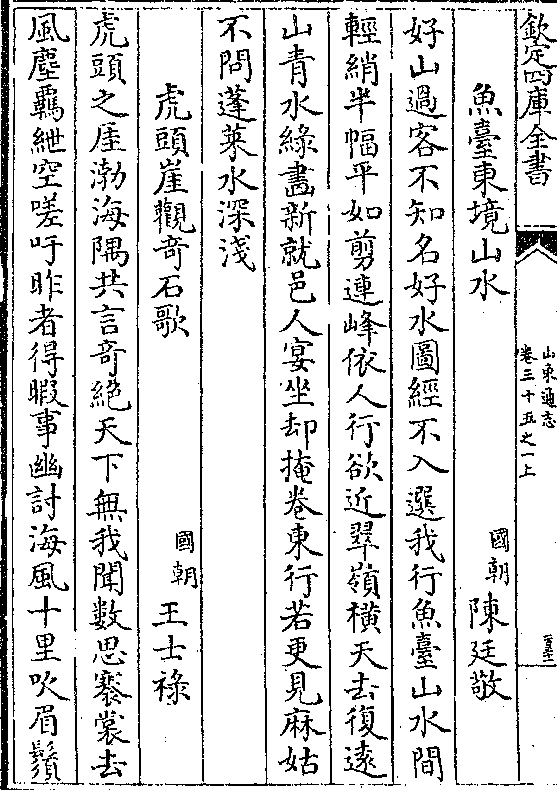 欽定四庫全書
山東通志
卷三十五之一上
魚臺東境山水
國朝 陳廷敬
好山過客不知名好水圖經不入選我行魚臺山水間
輕綃半幅平如剪連峰依人行欲近翠嶺橫天去復遠
山青水綠畵新就邑人宴坐却掩卷東行若更見麻姑
不問蓬萊水深淺
虎頭崖觀竒石歌
國朝 王士祿
虎頭之厓渤海隅共言竒絶天下無我聞數思褰裳去
風塵覊紲空嗟吁昨者得暇事幽討海風十里吹眉鬚